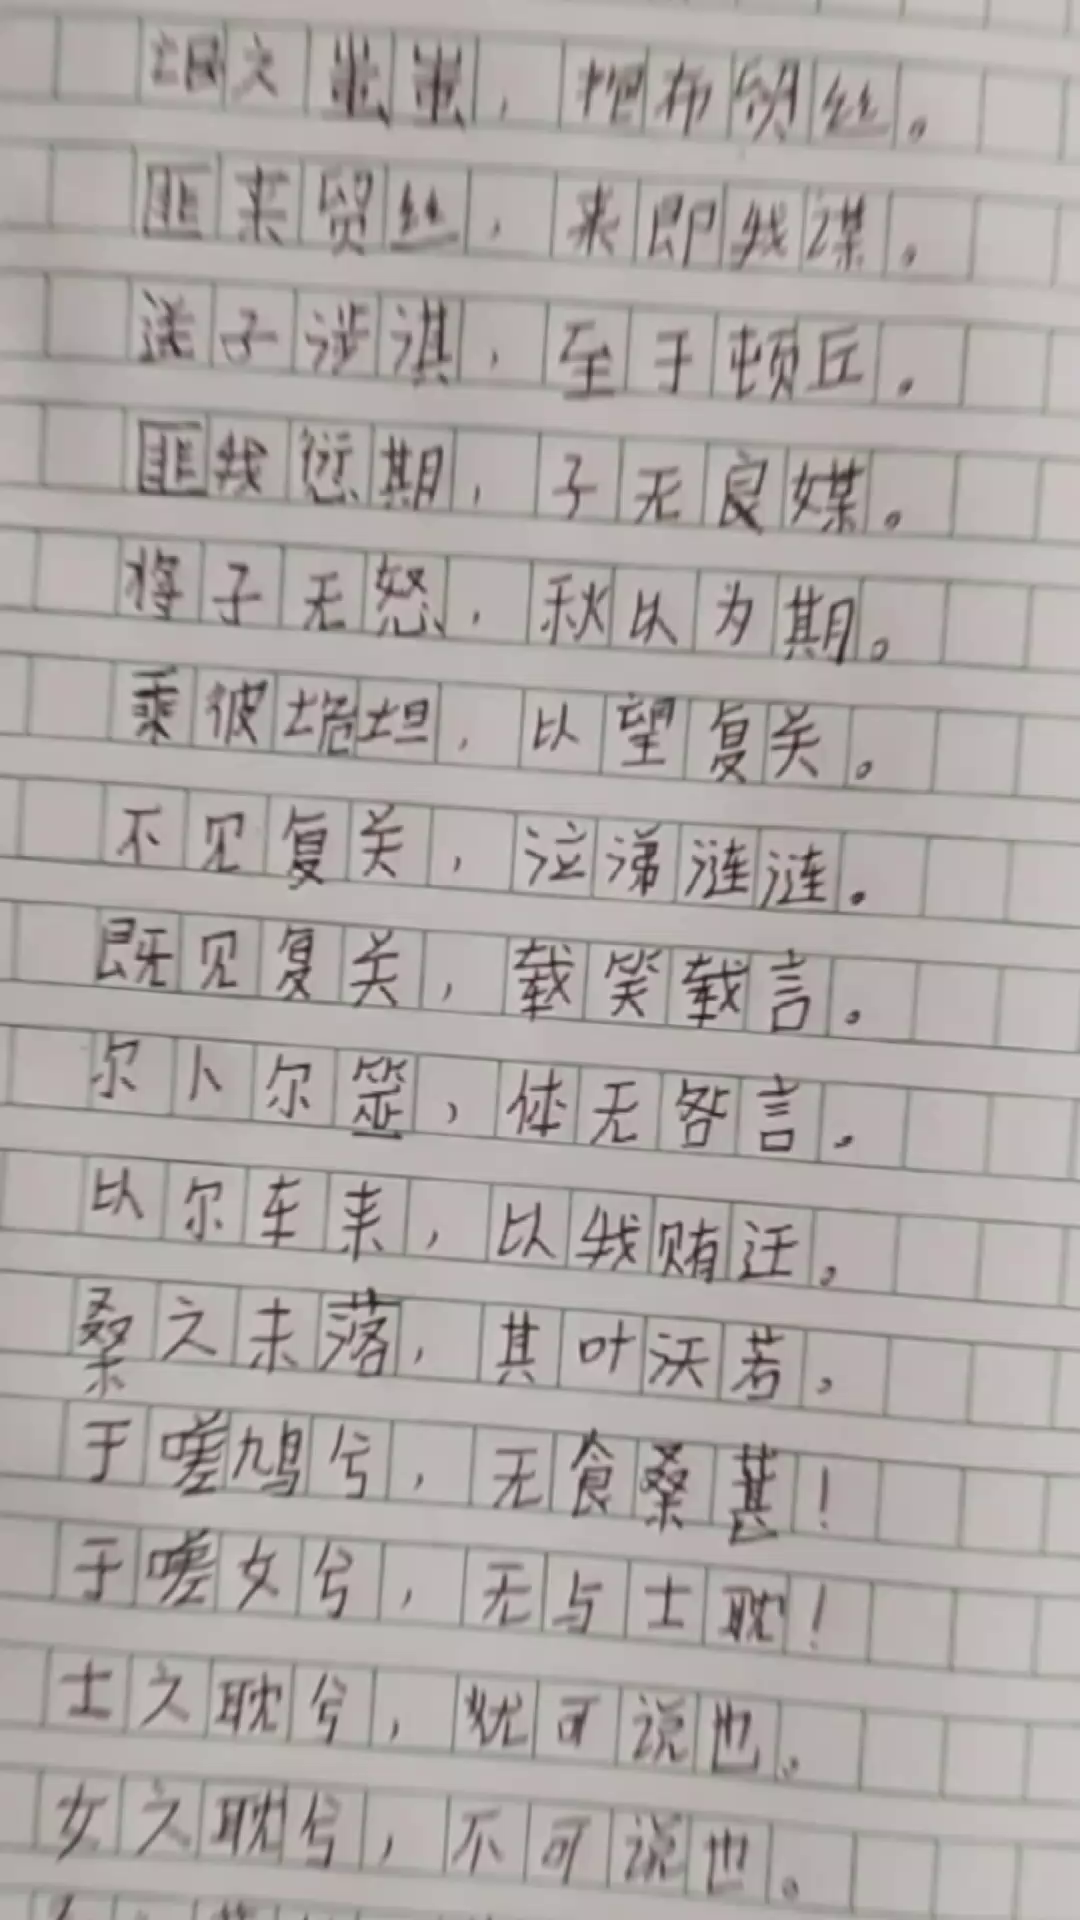 氓之蚩蚩，抱布贸丝。
匪来贸丝，来即我谋。
送子涉淇，至于顿丘。
匪我愆期，子无良媒。
将子无怒，秋以为期。
乘彼垝垣，以望复关。
不见复关，泣涕涟涟。
既见复关，载笑载言。
尔卜尔筮，体无咎言。
以尔车来，以我贿迁。
桑之未落，其叶沃若。
于嗟鸠兮，无食桑葚！
于嗟女兮，无与士耽！
士之耽兮，犹可说也。
女之耽兮，不可说也。